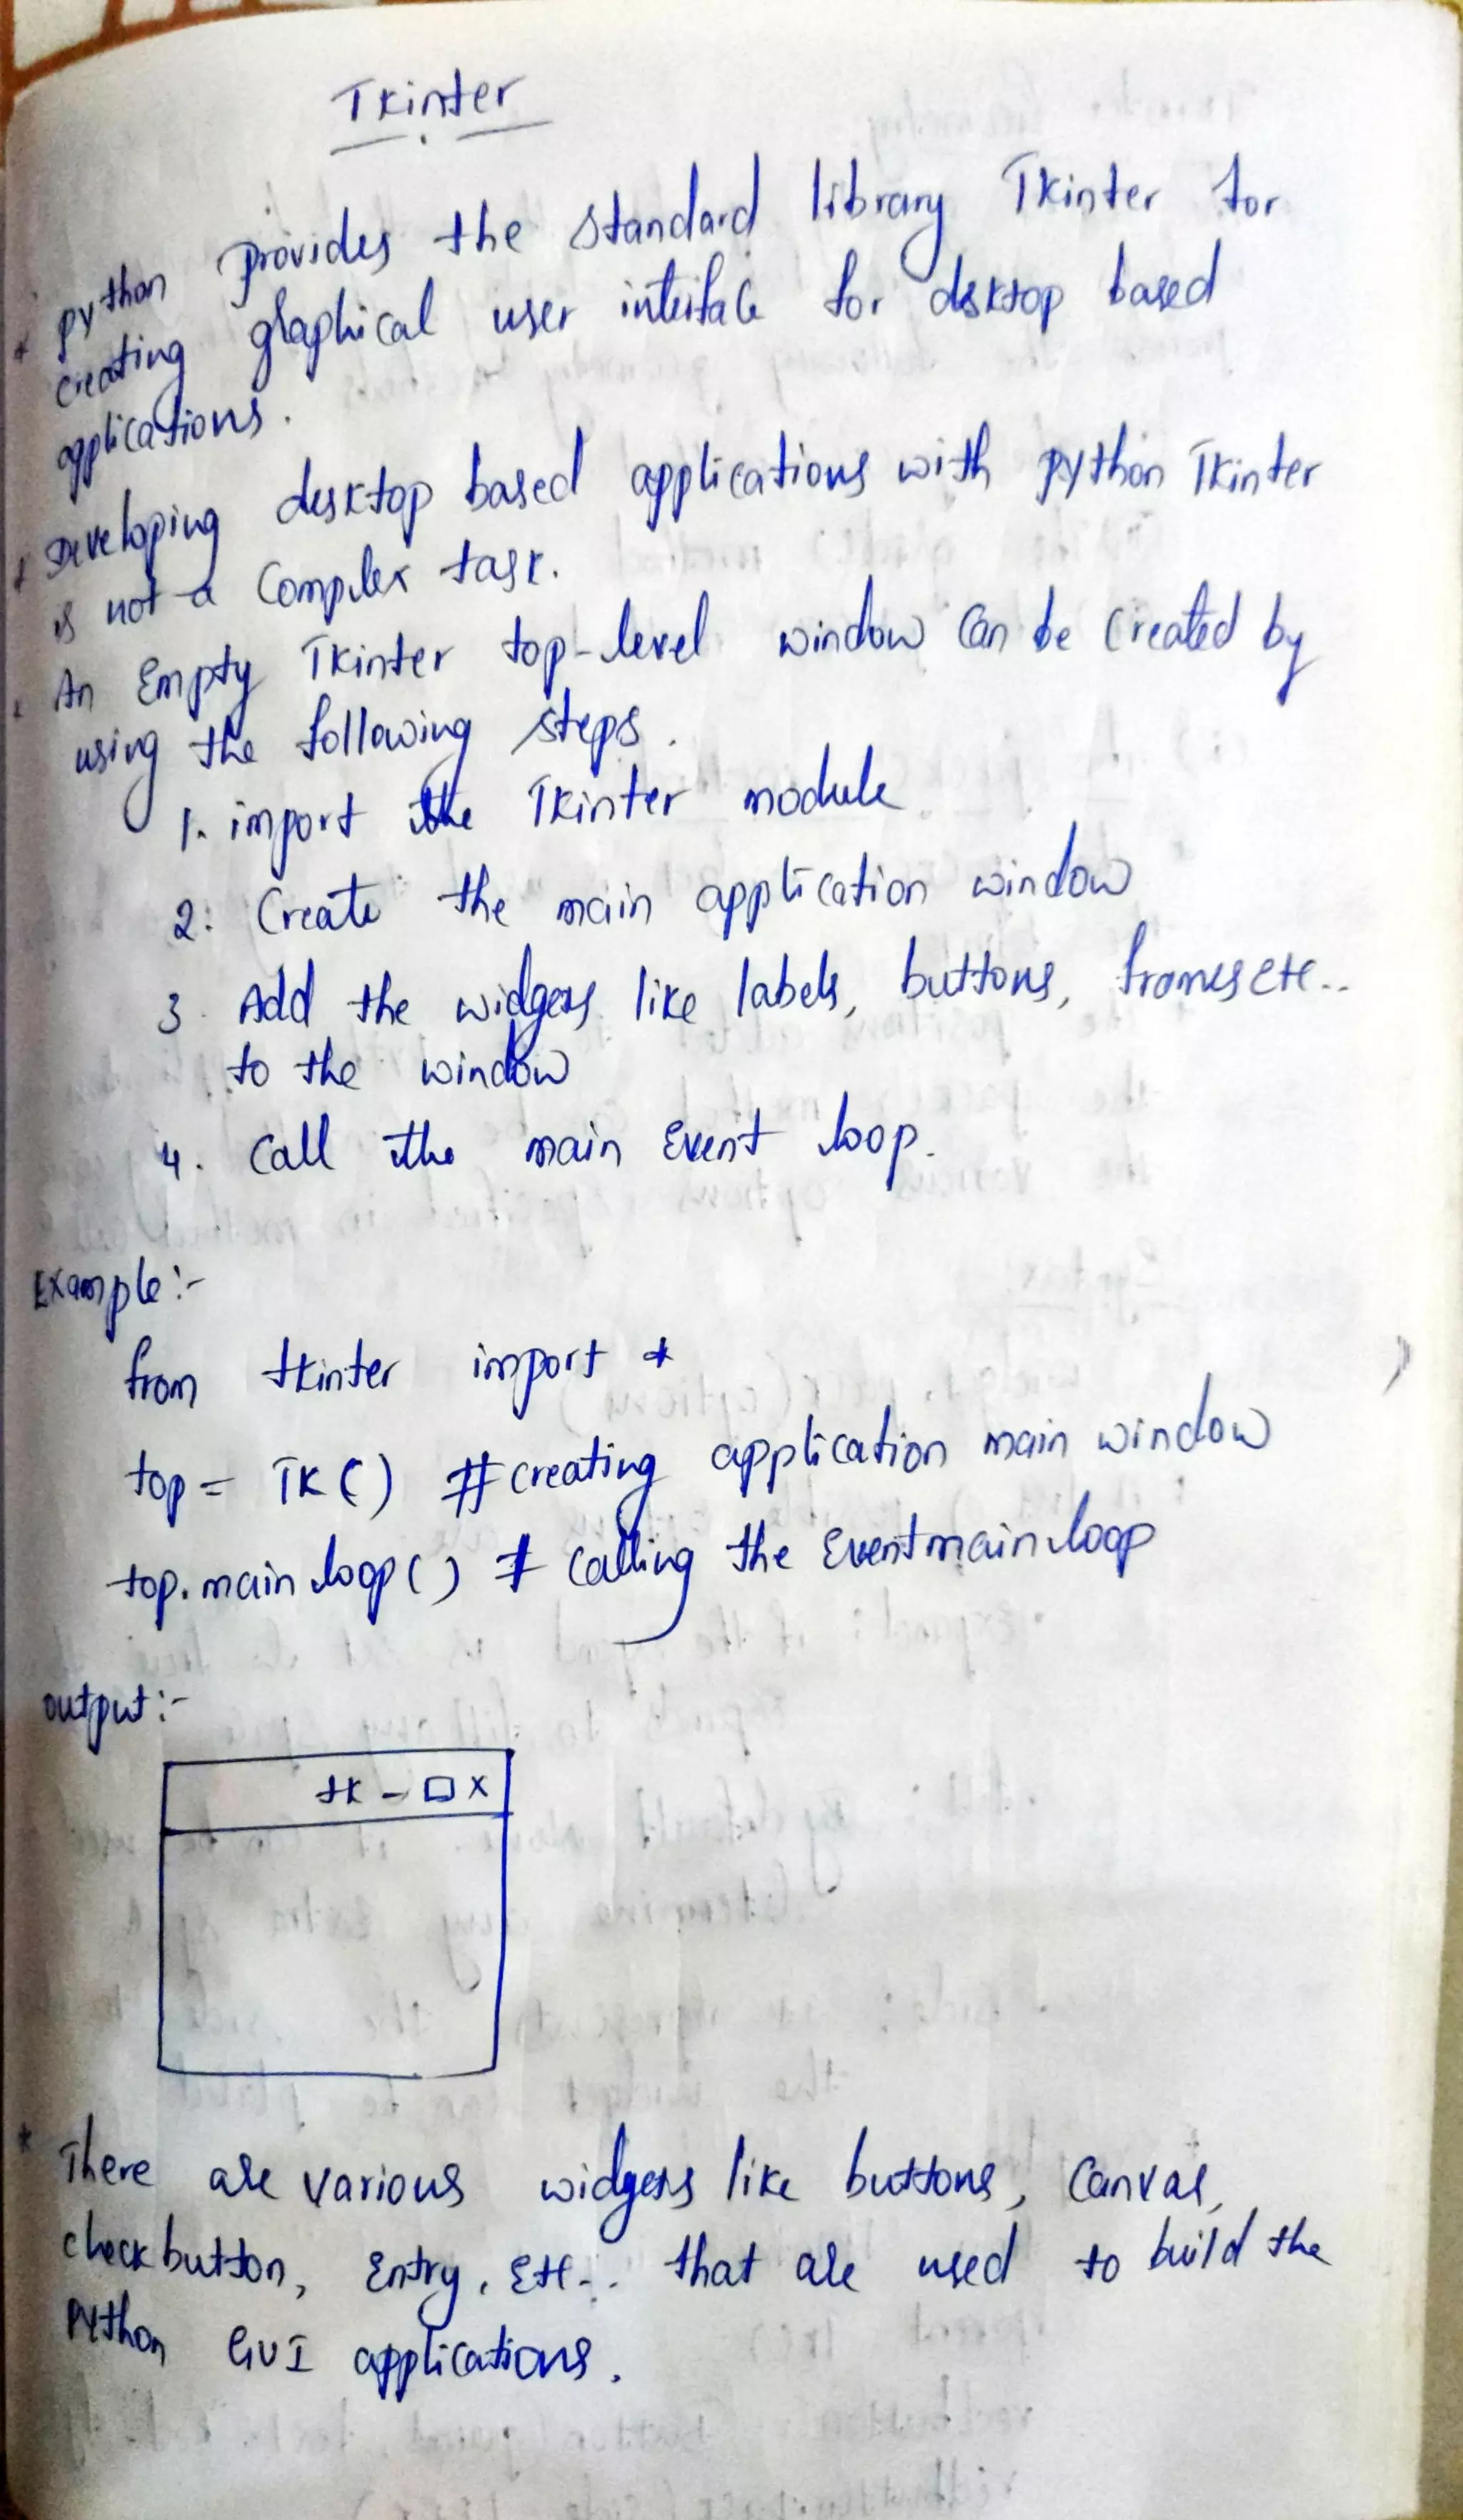 Tkinter
* python provides the standard library Tkinter for
creating graphical user interface for desktop based
applications.
* Developing desktop based applications with python Tkinter
is not a Complex task.
* An Empty Tkinter top-level window Can be Created by
using the following steps.
1. import the Tkinter module
2. Create the main application window
3. Add the widgets like labels, buttons, frames etc..
to the window
4. Call the main Event loop.
Example:-
from tkinter import *
top = TK() #creating application main window
top.mainloop() # Calling the Event main loop
output:-
tk - □ X
* There are various widgets like buttons, Canvas,
checkbutton, Entry, Etc.. that are used to build the
Python GUI applications.